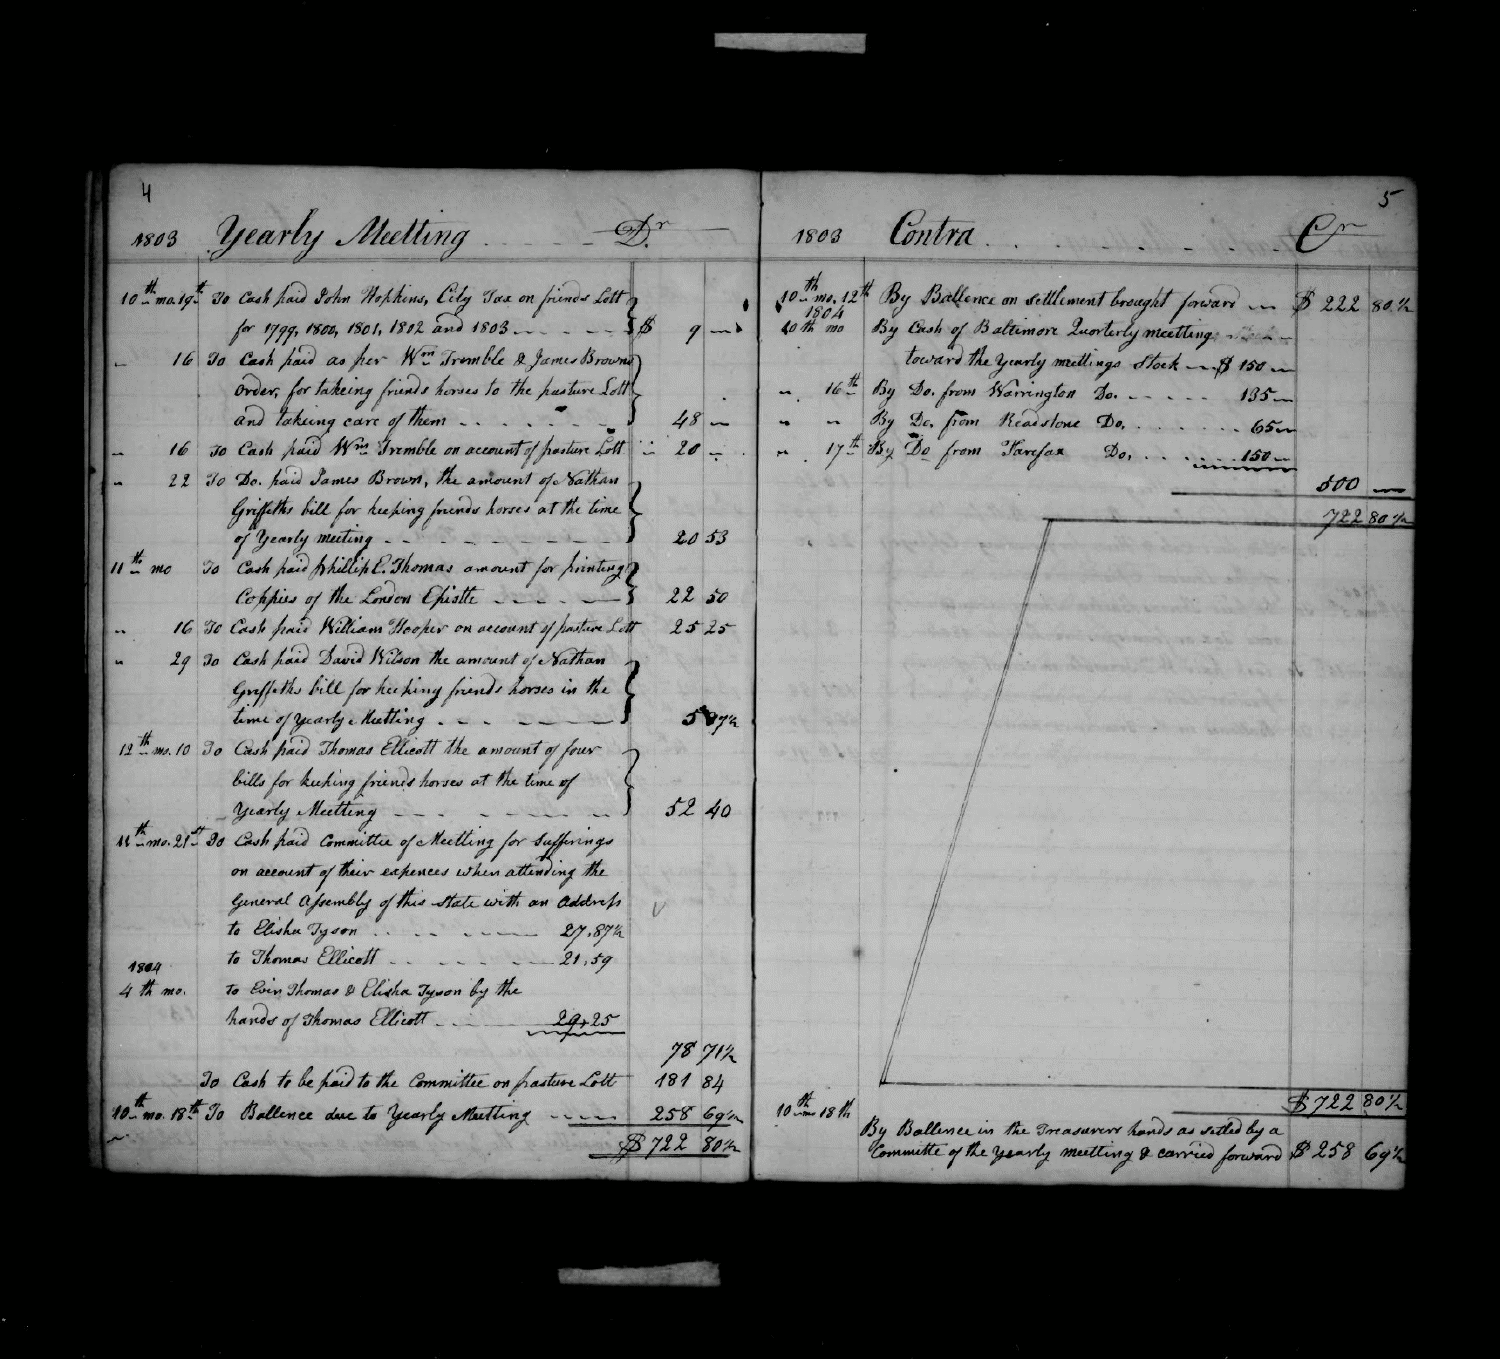 4
1803 Yearly Meetting Dr.
10th mo. 19th To Cash paid John Hopkins, City Tax on friends Lott
for 1799, 1800, 1801, 1802 and 1803 $ 9 —
" 16 To Cash paid as per Wm Tremble & James Browns
order, for takeing friends horses to the pasture Lott
and takeing care of them 48 —
" 16 To Cash paid Wm Tremble on account of pasture Lott 20 —
" 22 To Do. paid James Brown, the amount of Nathan
Griffeths bill for keeping friends horses at the time
of Yearly meeting 20 53
11th mo To Cash paid Phillip E. Thomas amount for printing
Coppies of the London Epistle 22 50
" 16 To Cash paid William Hooper on account of pasture Lott 25 25
" 29 To Cash paid David Wilson the amount of Nathan
Griffeths bill for keeping friends horses in the
time of Yearly Meetting 5 87½
12th mo. 10 To Cash paid Thomas Ellicott the amount of four
bills for keeping friends horses at the time of
Yearly Meetting 52 40
11th mo. 21st To Cash paid Committee of Meetting for Sufferings
on account of their expences when attending the
General Assembly of this state with an Address
to Elisha Tyson 27.87½
to Thomas Ellicott 21.59
1804
4th mo. to Evin Thomas & Elisha Tyson by the
hands of Thomas Ellicott 29.25
78 71½
To Cash to be paid to the Committee on pasture Lott 181 84
10th mo. 18th To Ballence due to Yearly Meetting 258 69½
$ 722 80½
5
1803 Contra Cr
10th mo. 12th By Ballence on settlement brought forward $ 222 80½
1804
10th mo By Cash of Baltimore Quorterly meetting
toward the Yearly meettings Stock $ 150 —
" 16th By Do. from Warrington Do. 135 —
" " By Do. from Readstone Do. 65 —
" 17th By Do from Fairfax Do. 150 —
500 —
722 80½
$ 722 80½
10th mo 18th
By Ballence in the Treasurers hands as setled by a
Committe of the Yearly meetting & carried forward $ 258 69½